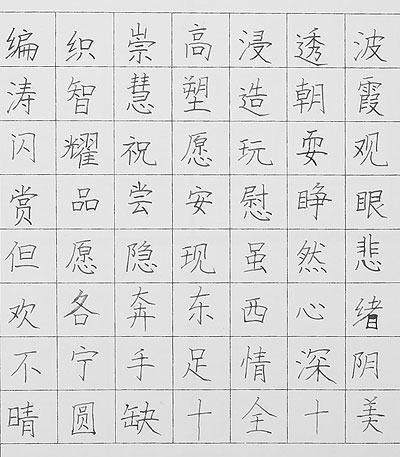 编织崇高浸透波
涛智慧塑造朝霞
闪耀祝愿玩耍观
赏品尝安慰睁眼
但愿隐现虽然悲
欢各奔东西心绪
不宁手足情深阴
晴圆缺十全十美